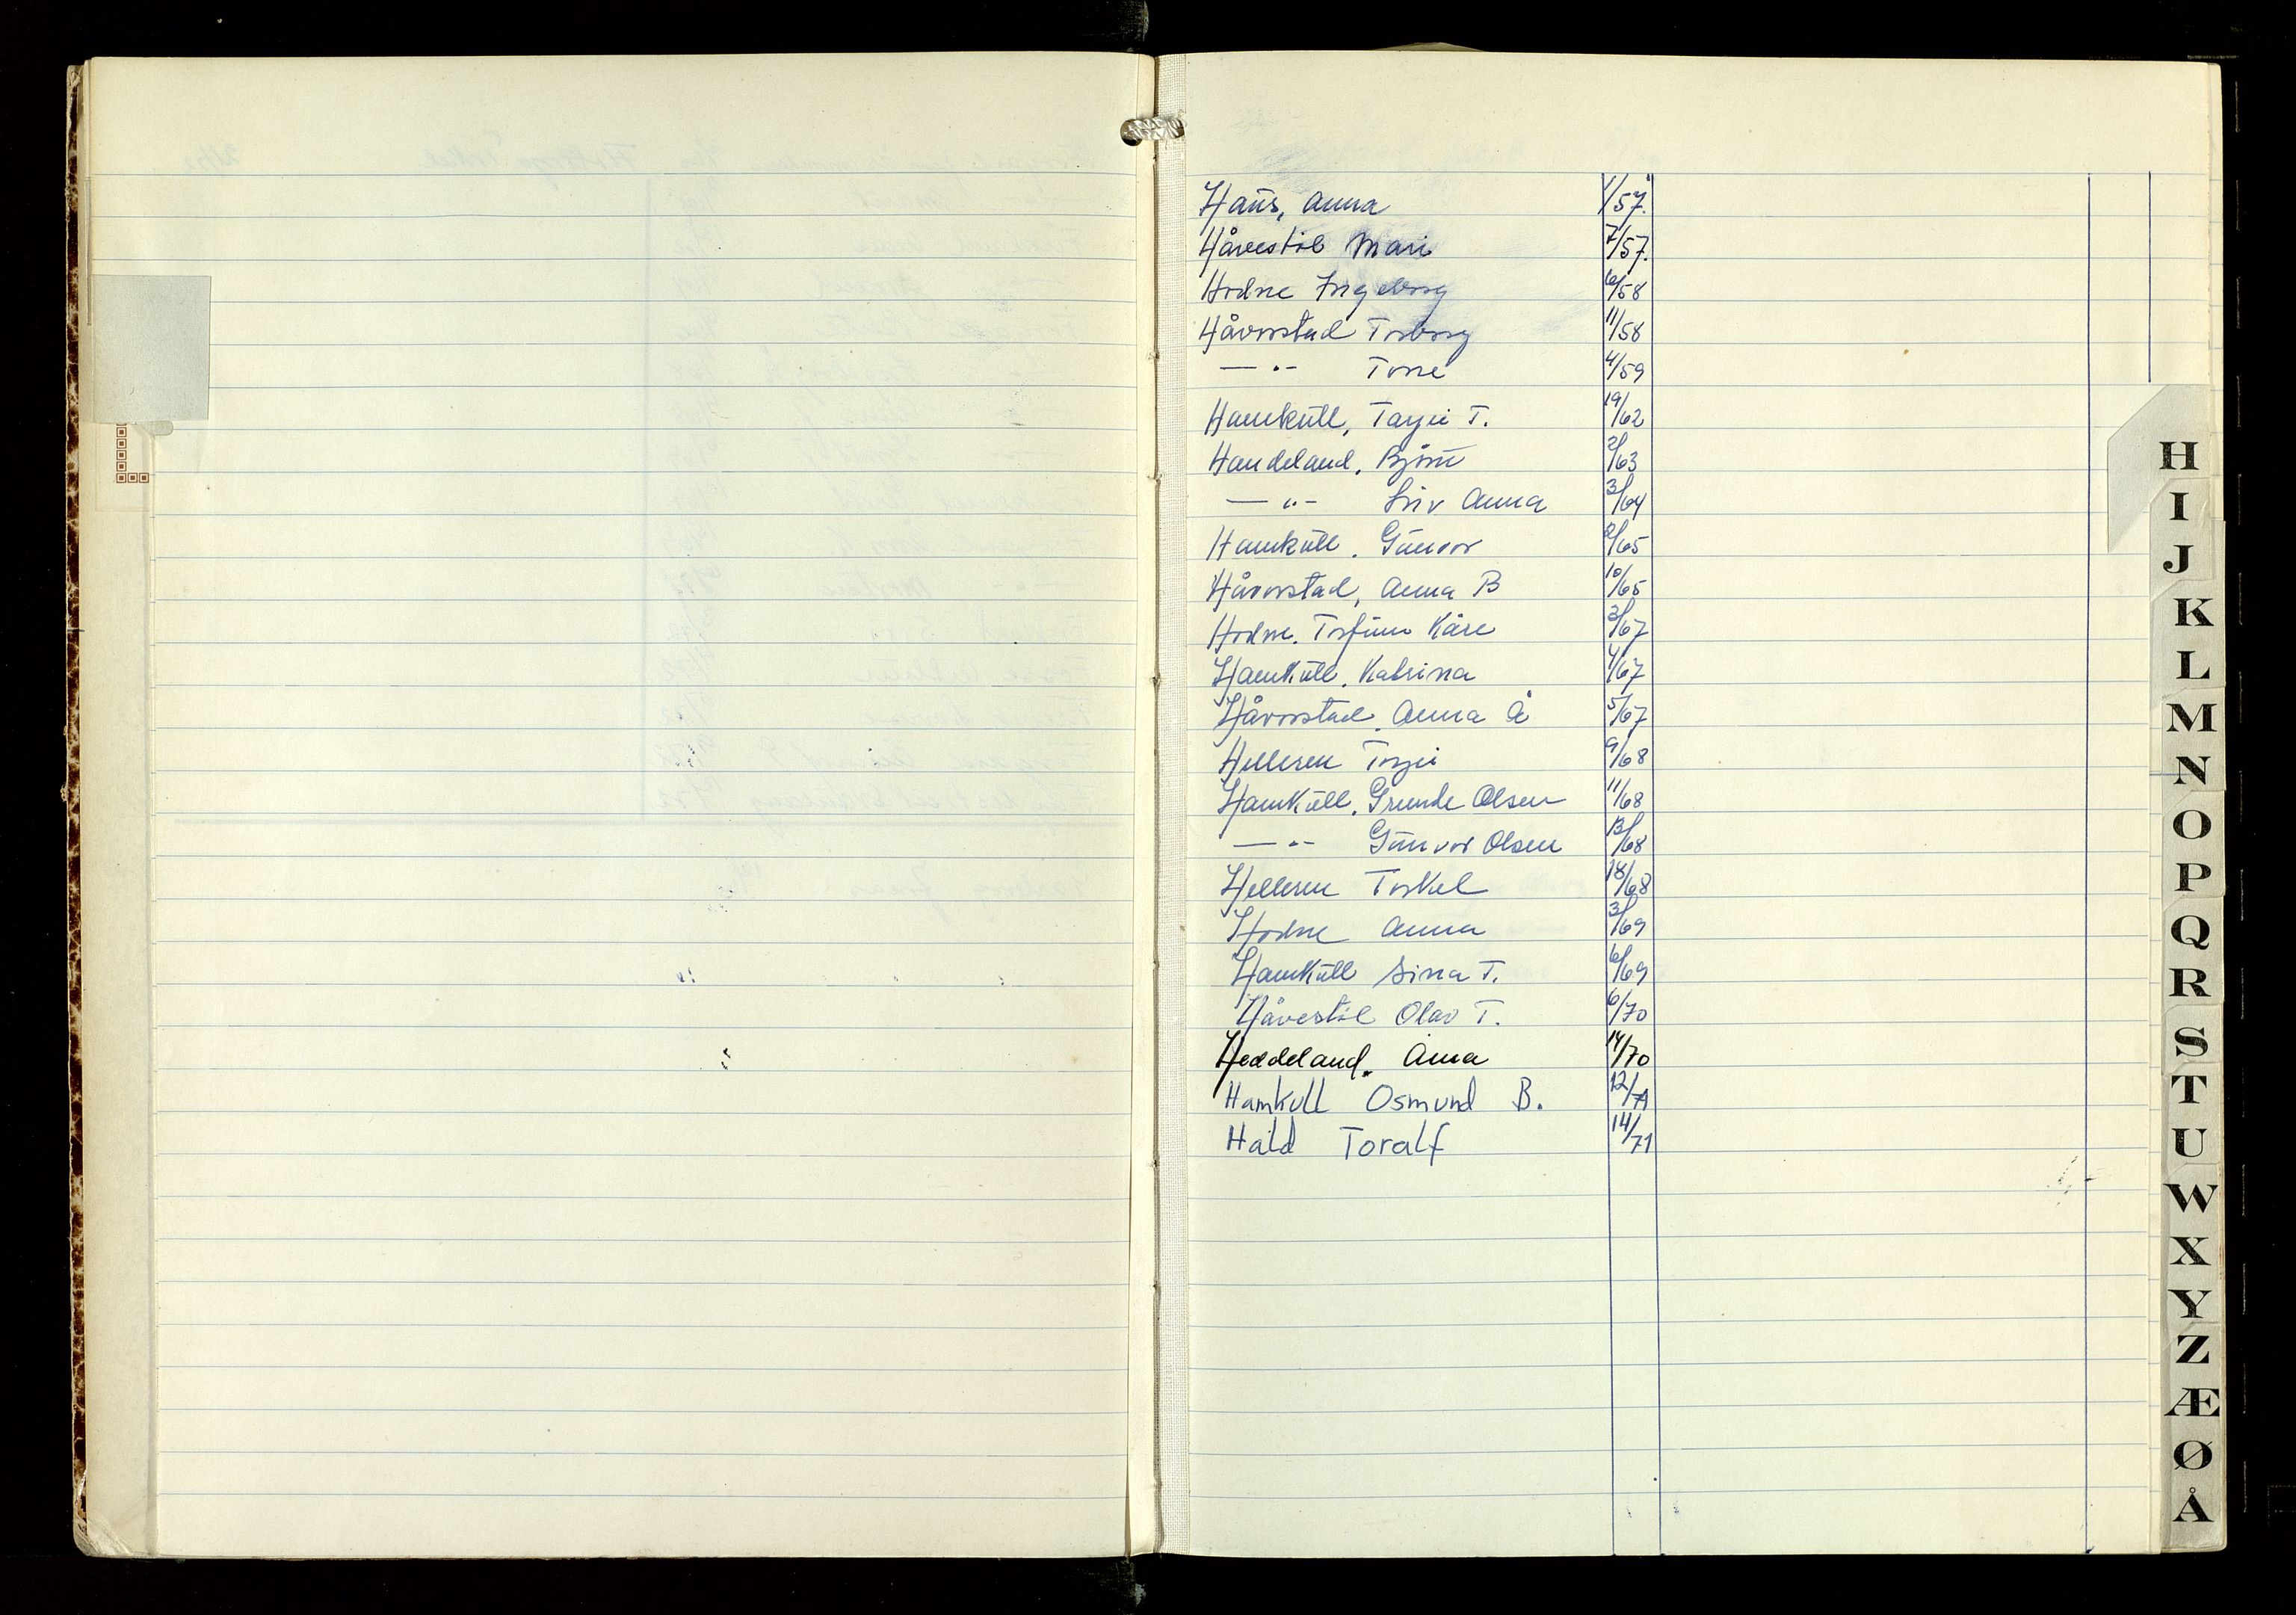 Haus, Anna 1/57.
Håvestøl Mari 7/57.
Hodne Ingeborg 6/58
Håvorstad Torborg 11/58
— " — Tone 4/59
Hamkull, Tarjei T. 19/62
Handeland, Bjørn 2/63
— " — Siv Anna 3/64
Hamkull, Gunvor 2/65
Håvorstad, Anna B 10/65
Hodne, Torfinn Kåre 3/67
Hamkull, Katrina 4/67
Håvorstad, Anna Å 5/67
Helleren Torjei 9/68
Hamkull, Grunde Olsen 11/68
— " — Gunvor Olsen 13/68
Helleren Torkel 18/68
Hodne Anna 3/69
Hamkull Sina T. 6/69
Håvestøl Olav T. 6/70
Heddeland, Anna 14/70
Hamkull Osmund B. 12/71
Hald Toralf 14/71
H
I
J
K
L
M
N
O
P
Q
R
S
T
U
W
X
Y
Z
Æ
Ø
Å